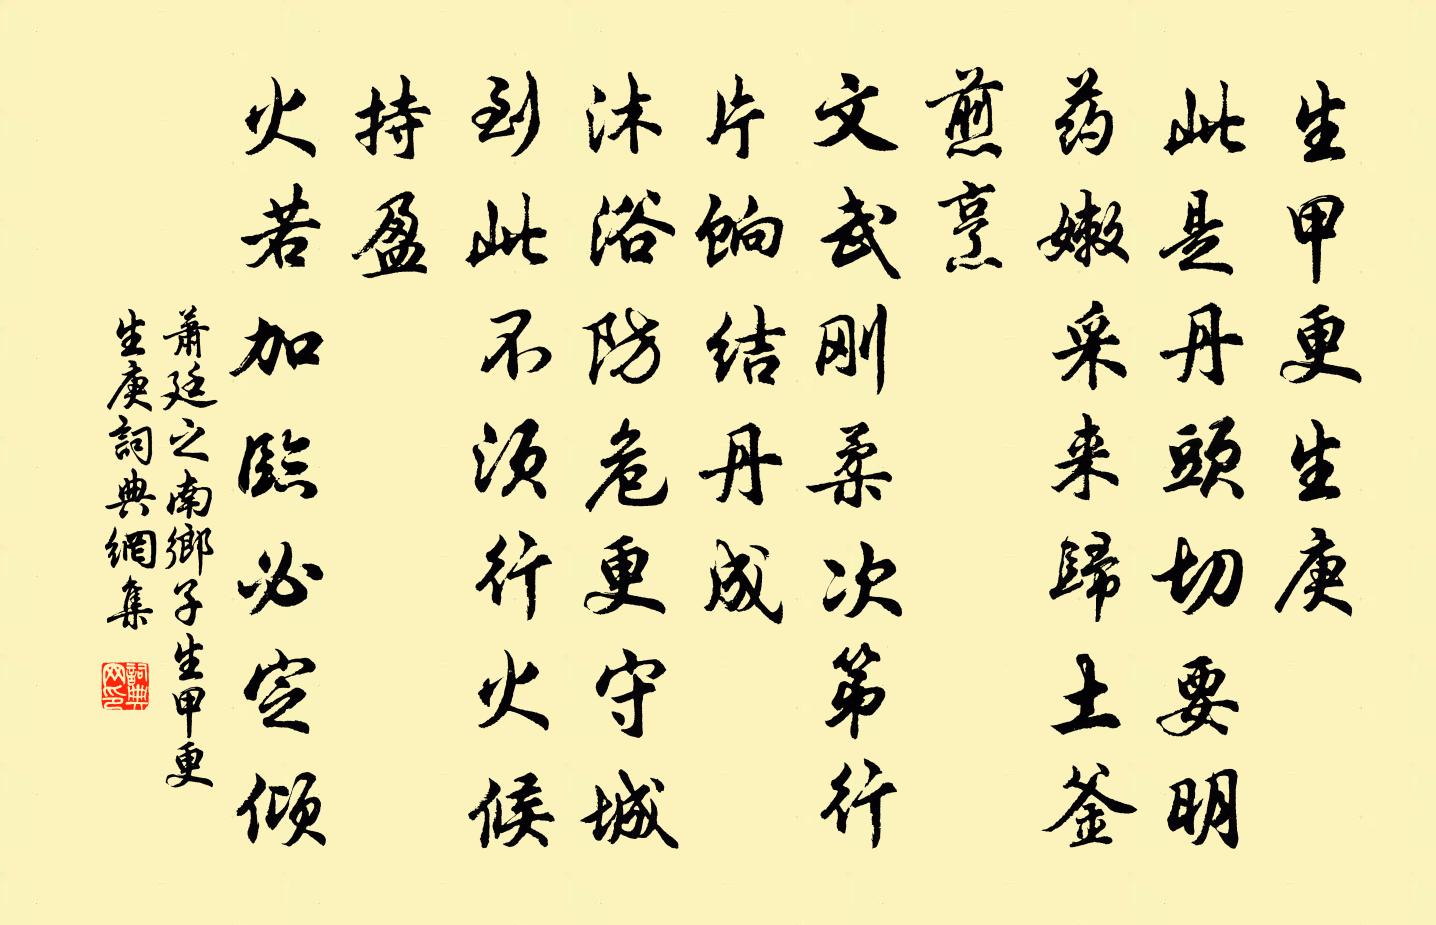 生甲更生庚
此是丹頭切要明
药嫩采来歸土釜
煎烹
文武刚柔次第行
片餉结丹成
沐浴防危更守城
到此不须行火候
持盈
火若加臨必定倾
萧廷之南鄉子生甲更
生庚詞典網集
詞典
网印